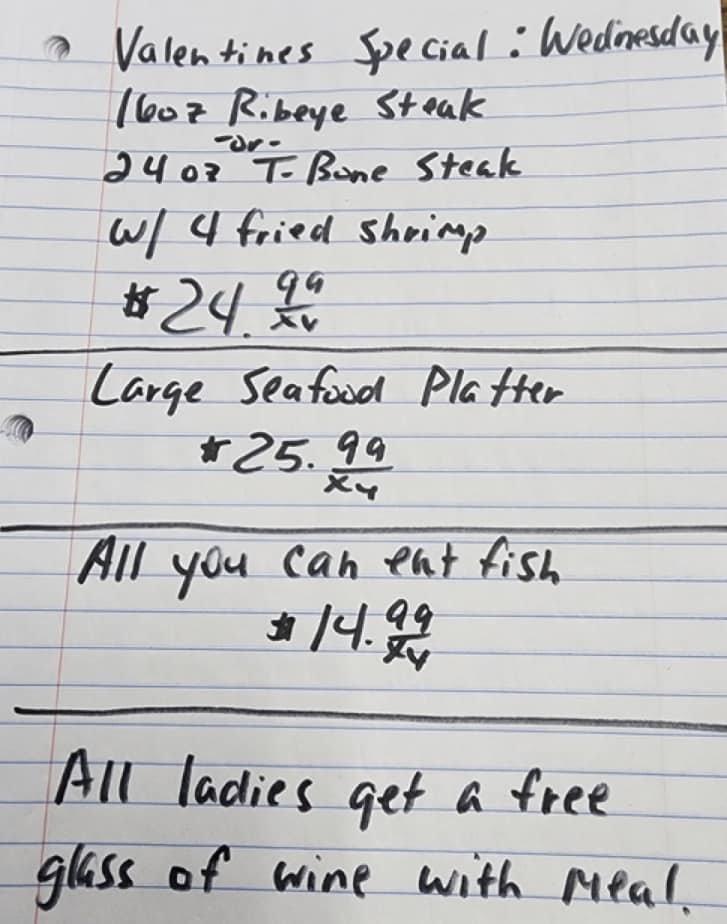 Valentines Special : Wednesday
16oz Ribeye Steak
-or-
24oz T-Bone Steak
w/ 4 fried shrimp
$24.99
xx
Large Seafood Platter
$25.99
xx
All you can eat fish
$14.99
xx
All ladies get a free
glass of wine with meal.